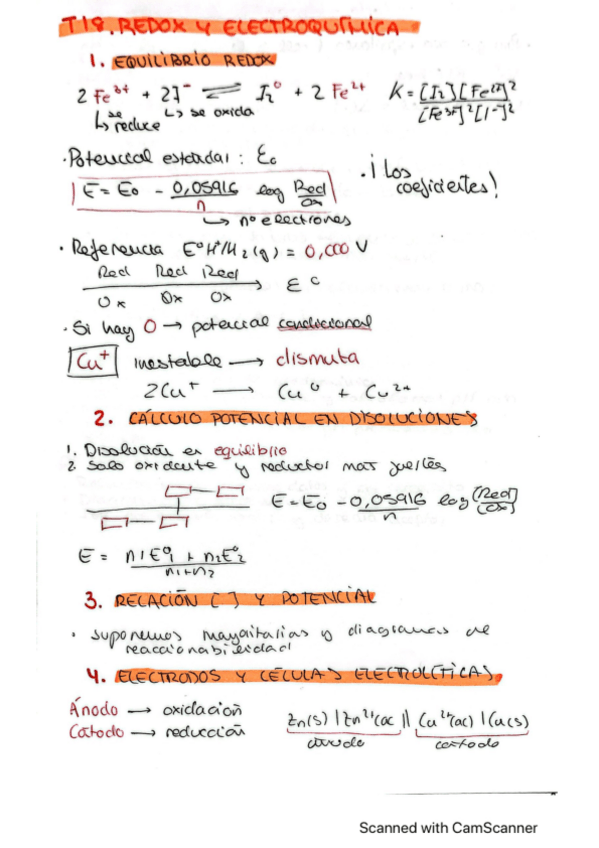 T18. REDOX Y ELECTROQUÍMICA
1. EQUILIBRIO REDOX
2 Fe³⁺ + 2I⁻ ⇌ I₂⁰ + 2 Fe²⁺ K = [I₂][Fe²⁺]² / [Fe³⁺]²[I⁻]²
↳ se reduce ↳ se oxida
· Potencial estándar: E₀
E = E₀ - 0,05916/n log Red/Ox
↳ nº electrones
· ¡Los coeficientes!
· Referencia E⁰H⁺/H₂(g) = 0,000 V
Red Red Red
Ox Ox Ox
→ E⁰
· Si hay 0 → potencial condicional
Cu⁺ inestable → dismuta
2Cu⁺ → Cu⁰ + Cu²⁺
2. CÁLCULO POTENCIAL EN DISOLUCIONES
1. Disolución en equilibrio
2. Solo oxidante y reductor mas fuertes
E = E₀ - 0,05916/n log [Red]/[Ox]
E = n₁E⁰₁ + n₂E⁰₂ / n₁+n₂
3. RELACIÓN [ ] Y POTENCIAL
· suponemos mayoritarias y diagramas de
reaccionabilidad
4. ELECTRODOS Y CÉLULAS ELECTROLÍTICAS
Ánodo → oxidación
Cátodo → reducción
Zn(s) | Zn²⁺(ac || Cu²⁺(ac) | Cu(s)
ánodo cátodo
Scanned with CamScanner